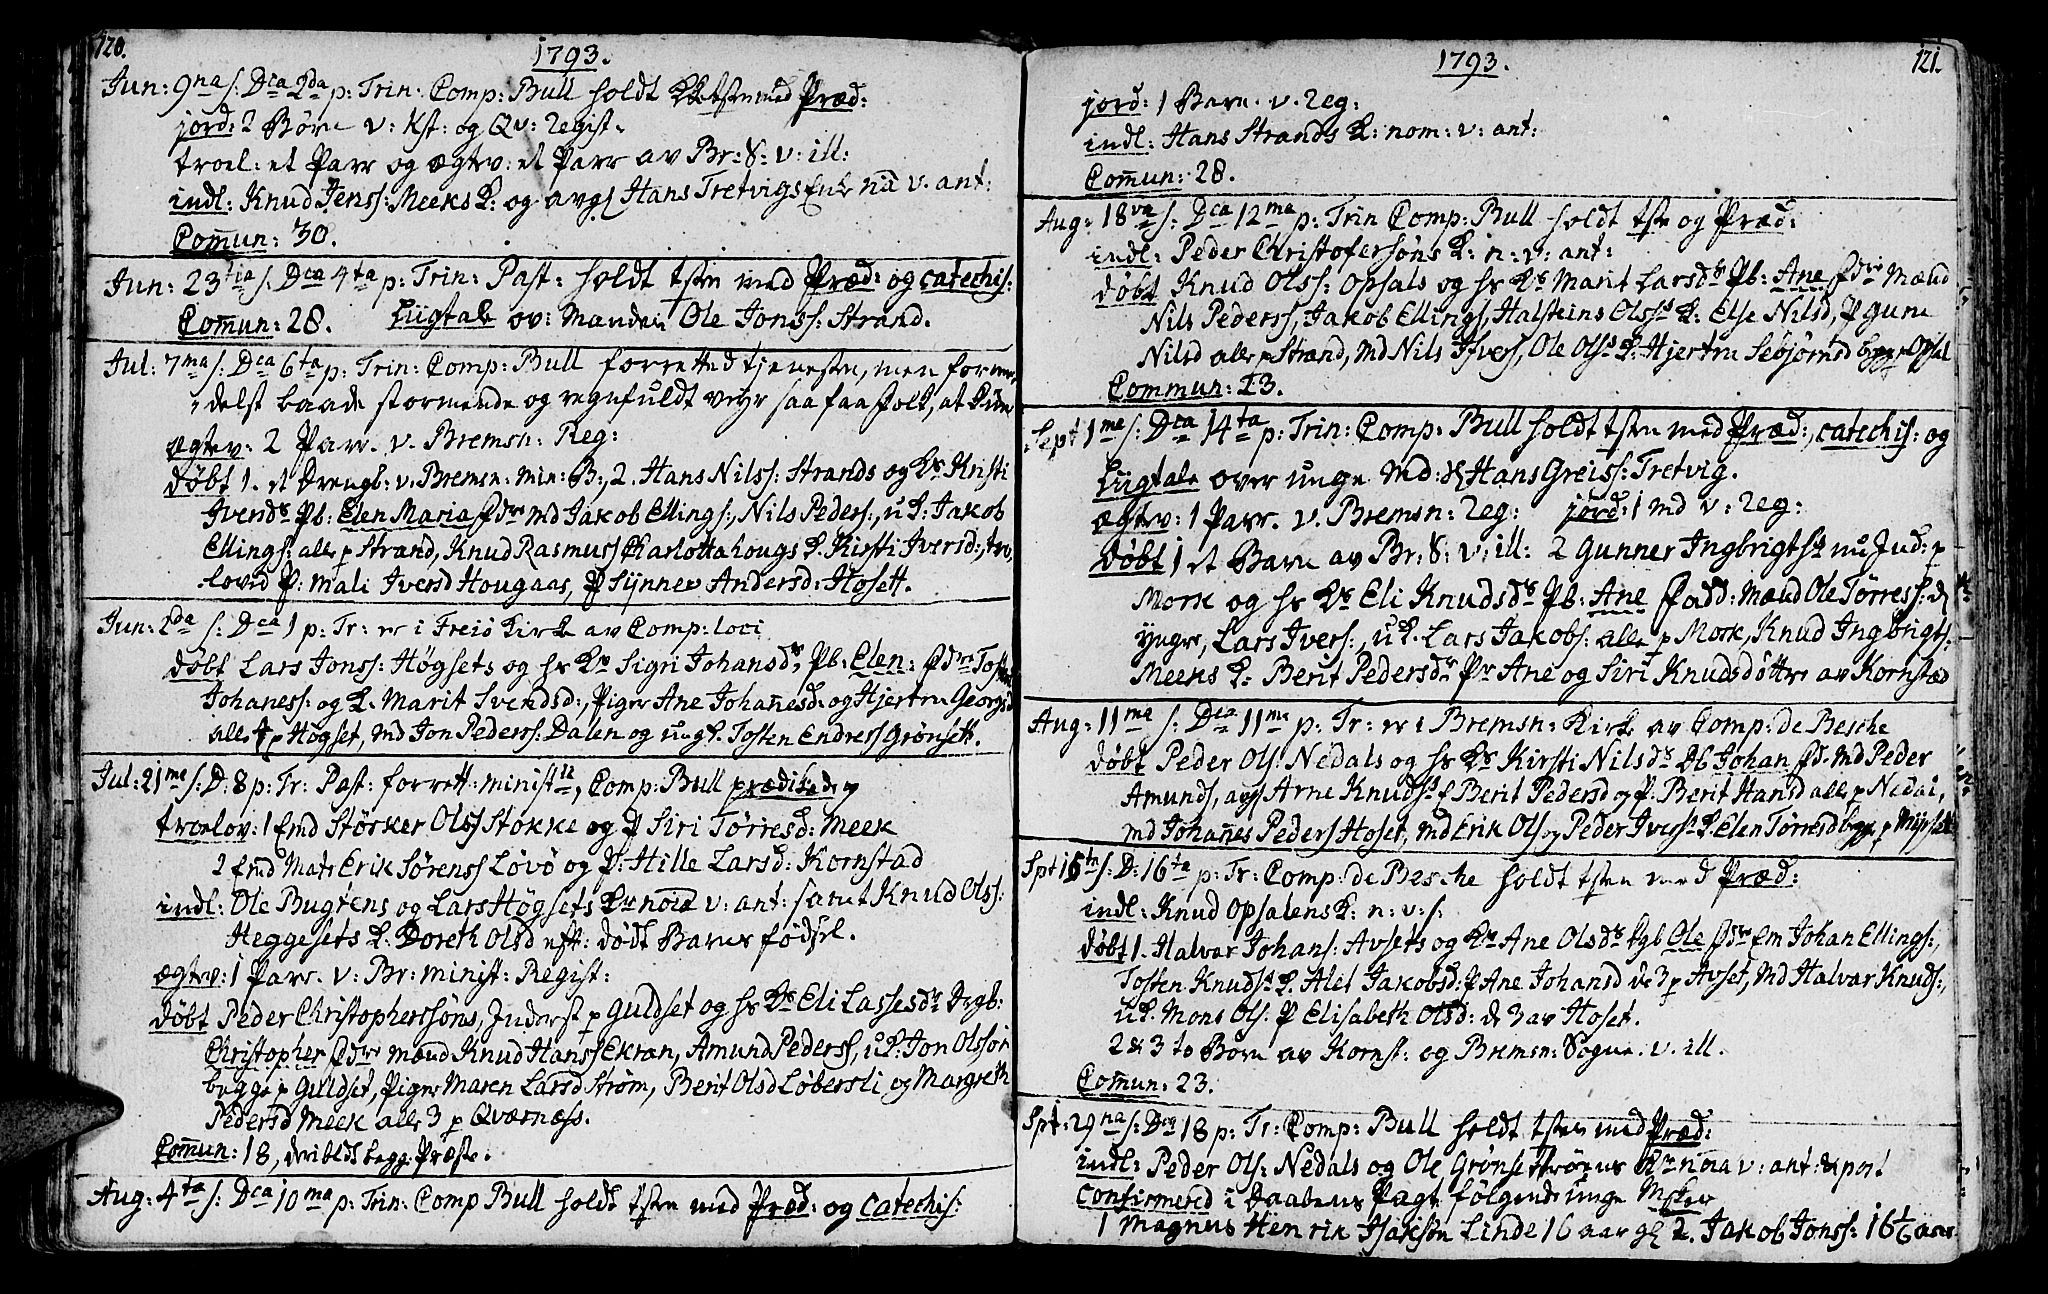 120.
1793.
Jun: 9na s: Dca 2da p: Trin: Comp: Bull holdt med Præd:
jord: 2 Børn v: Kst: og Qv: Regist.
troel: et Parr og ægtev: et Parr av Br: S: v: ill:
indl: Knud Jenss: Meeks K: og avgs Hans Tretvigs Enk v. ant:
Com̄un: 30.
Jun: 23tia s: Dca 4ta p: Trin: Past: holdt tsten med Præd: og catechis:
Com̄un: 28. Liigtale ov: Manden Ole Jonss: Strand.
Jul: 7ma s: Dca 6ta p: Trin: Comp: Bull forretted tjenesten, men
delst baade stormende og regnfuldt veyr saa faa Folk, at
ægtev: 2 Parr. v. Bremsn: Reg:
døbt 1. et Drengb: v. Bremsn: min: B:, 2. Hans Nilss: Strands og Ks Kristi
Iversds Pb: Elen Maria Fdre Md Jakob Ellings:, Nils Peders:, u.K: Jakob
Ellings: alle p Strand, Knud Rasmuss Charlottahougs K. Kirsti Iversd:, tro,
lovid P: Mali Iversd Hougaas, P Synnev Andersd: Hosett.
Jun: 2da s: Dca 1 p: Tr: er i Freiø Kirke av Comp: loci
døbt Lars Jonss: Høgsets og hs Ks Sigri Johansds Pb: Elen: Fdre
Johaness: og K. Marit Svendsd:, Piger Ane Johanesd: og Hjertru Georgsd
alle p Høgset, Md Jon Pederss: Dalen og ungk. Tosten Endress Grønsett.
Jul: 21ma s: D: 8 p: Tr: Past: forrett: minist, Comp: Bull prædiked og
troelov: 1 Emd Størker Olss Stokke og P Siri Tørresd: Meek
2 Emd Mats Erik Sørenss Løvø og P: Hille Larsd: Kornstad
indl: Ole Bugtens og Lars Høgsets v: ant: samt Knud Olss:
Heggesets K. Doreth Olsd eft: dødt Barns fødsel.
ægtev: 1 Parr. v: Br: minist: Regist:
døbt Peder Christopherssøns, Inderst p Guldset og hs Ks Eli Lassesds Drgb:
Christopher Fdre Mænd Knud Hanss Ekran, Amund Pederss, u.K: Jon Olssøn
begge p Guldset, Piger Maren Larsd Strøm, Berit Olsd Løbersli og Margreth
Pedersd Meek alle 3 p Qværness.
Com̄un: 18, begge Præste.
Aug: 4ta s: Dca 10ma p: Trin: Comp Bull holdt tsten med Præd: og Catechis:
1793.
121.
jord: 1 Barn. v. Reg:
indl: Hans Strands K: nom: v: ant:
Com̄un: 28.
Aug: 18va s: Dca 12ma p: Trin Comp: Bull holdt tste og Præd:
indl: Peder Christofersøns K: n: v: ant:
døbt Knud Olss: Opsals og hs Ks Marit Larsds Pb: Ane Fdre Mænd
Nils Pederss, Jakob Ellings, Halsteins Olsss K: Else Nilsd, P Gune
Nilsd alle p Strand, Md Nils Ifvers, Ole Olss K: Hjertru Sebjørnsd begge p Opsal
Commun: 13.
Sept 1ma s: Dca 14ta p: Trin: Comp: Bull holdt tsten med Præd:, catechis: og
Liigtale over unge Md: Hans Greiss: Tretvig.
ægtev: 1 Parr. v. Bremsn: Reg: jord: 1 md v: Reg:
døbt 1 et Barn av Br: S: v: ill: 2 Gunner Ingbrigtss nu Ind: p
Mork og hs Ks Eli Knudsds Pb: Ane Fadd: Mænd Ole Tørress: d
yngre, Lars Ivers:, u.K. Lars Jakobs: alle p Mork, Knud Ingbrigts:
Meeks K: Berit Pedersds Pr Ane og Siri Knudsdøttre av Kornstad
Aug: 11ma s: Dca 11ma p: Tr: er i Bremsn: Kirke av Comp: de Besche
døbt Peder Ols: Nedals og hs Ks Kirsti Nilsds Db Johan Fd. Md Peder
Amunds, avgs Arne Knuds E Berit Pedersd og P. Berit Hansd alle p Nedal,
Md Johan̄es Peders Hoset, Md Erik Ols og Peder Iverss K. Elen Tørresd begge p
Spt 15ta s: D: 16ta p: Tr: Comp: de Besche holdt tsten med Præd:
indl: Knud Opsalens K: n: v: s:
døbt 1. Halvar Johans: Avsets og Ks Ane Olsds Pgb Ole Fdre Em Johan Ellings:,
Tosten Knudss K. Alet Jakobsd: P Ane Johansd de 3 p Avset, Md Halvar Knuds:,
u.K. Mons Ols: P Elisabeth Olsd: de 3 av Hoset.
2 & 3 to Børn av Kornst: og Bremsn: Sogne. v. ill.
Com̄un: 23.
Spt: 29na s: Dca 18 p: Tr: Comp: Bull holdt tsten med Præd:
indl: Peder Ols: Nedals og Ole Grønset v: ant: & post
Confirmered i Daabens Pagt følgende unge
1 Magnus Henrik Isakssøn Linde 16 aar gl 2. Jakob Jonss: 16½ aar